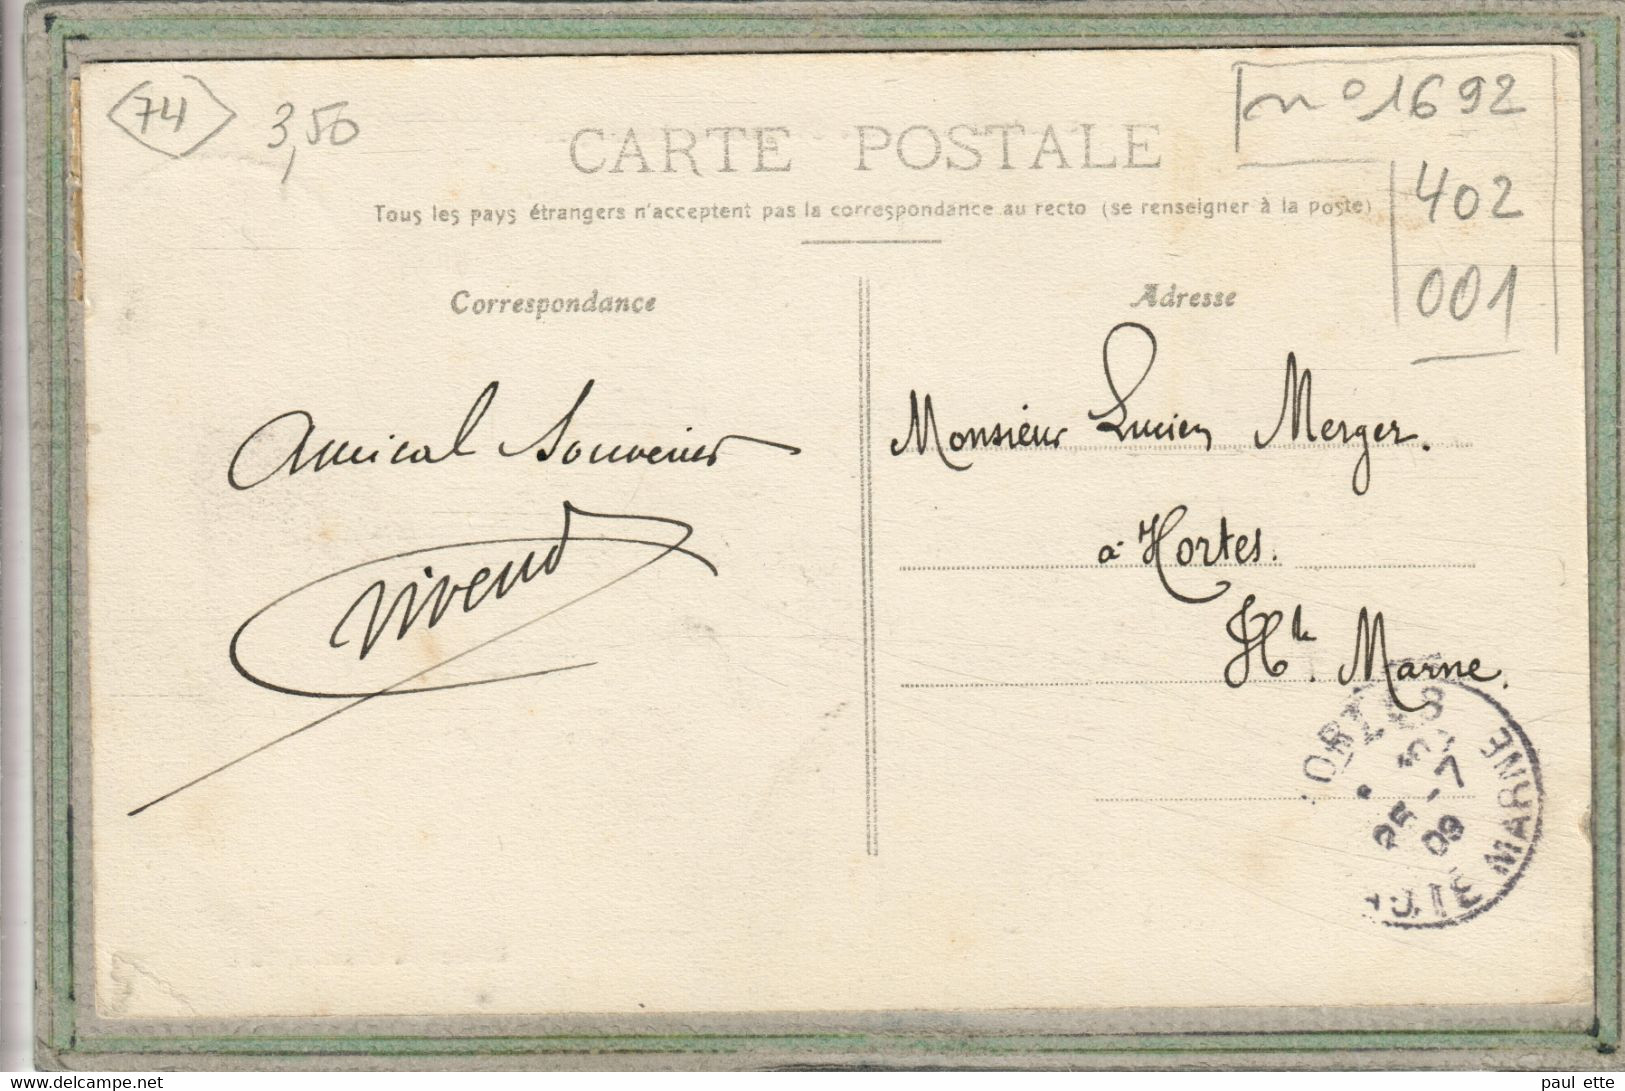 74
3,50
n° 1692
402
001
CARTE POSTALE
Tous les pays étrangers n'acceptent pas la correspondance au recto (se renseigner à la poste)
Correspondance
Adresse
Amical Souvenir
Monsieur Lucien Merger.
à Hortes.
Hte. Marne.
ORTES
25 -7
09
HAUTE MARNE
www.delcampe.net
paul ette